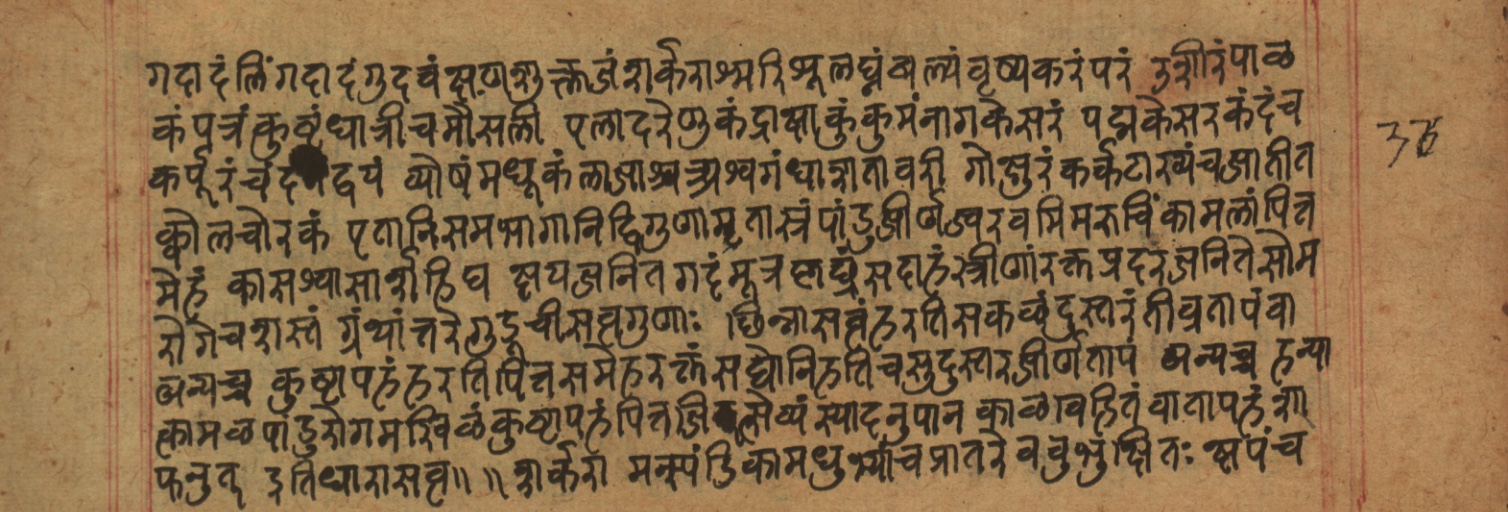 गदादं लिंगदादं गुदवंक्षणशुक्तजं शर्कराश्मरिशूलघ्नं बल्यं वृष्यकरं परं उशीरं पाळ
कं पत्रं कुष्टं धात्री च मौसली एलादरेणुकं द्राक्षा कुंकुमं नागकेसरं पद्मकेसरकंदं च
कर्पूरं चंद द्वयं व्योषं मधूकं लाजाश्च अश्वगंधा शतावरी गोक्षुरं कर्कटाख्यं च जाती त
क्कोलचोरकं एतानि समभागानि द्विगुणामृतासत्वं पांडुजीर्णज्वरवमिमरुचिं कामलां पित्त
मेहं कासश्वासार्श क्षयजनितगदं मूत्र सदाहं स्त्रीणां रक्तप्रदरजनिते सोम
रोगे च शस्तं ग्रंथांत्तरे गुडूचीसत्वगुणाः छिन्नासत्वं हरति सकळं दुस्तरं तीव्रतापं वा
अन्यच्च कुष्टापहं हरति पित्तसमेहरक्तं सद्योनिहति च सुदुस्तरजीर्णतापं अन्यच्च हन्या
त्कामळपांडुरोगमखिळं कुष्टापहं पित्तजि सेव्यं स्यादनुपान काळविहितं वातापहं शा
फनुत् इति धारासत्व॥ ॥ शर्करा मत्स्यंडिका मधुभ्यां च प्रातरेव बुभुक्षितः क्षपं च
३८